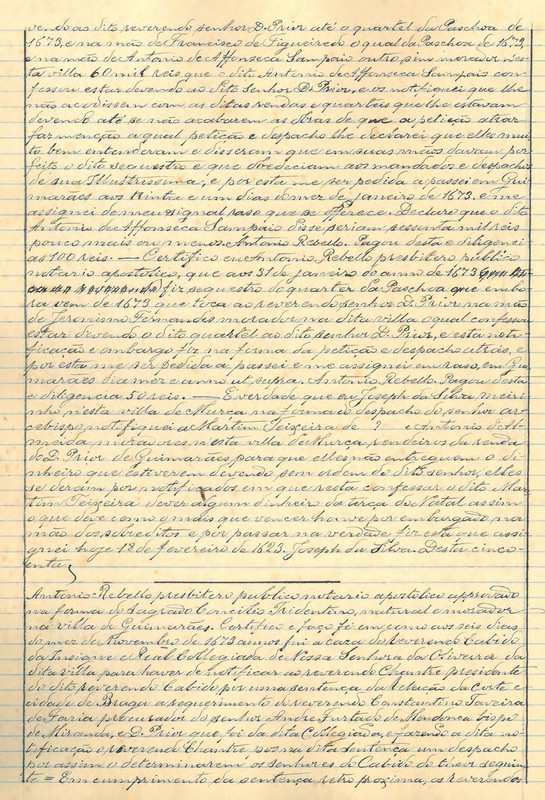 vendo ao dito reverendo senhor D. Prior até o quartel da Paschoa de
1673, e na mão de Francisco de Figueiredo o qual da Paschoa de 1673,
e na mão de Antonio de Affonseca Sampaio outro sim morador nes-
ta villa 60 mil reis que o dito Antonio de Affonseca Sampaio con-
fessou estar devendo ao dito Senhor D. Prior, e os notifiquei que lhe
não acodissem com as ditas rendas e quarteis que lhe estavam
devendo até se não acabarem as obras de que a petição atraz
faz menção a qual petição e despacho lhe declarei que elles mui-
ta bem entenderam e disseram que em suas mãos davam por
feito o dito sequestro e que obedeciam aos mandados e despachos
de sua Illustrissima, e por esta me ser pedida a passei em Gui-
marães aos trinta e um dias do mez de Janeiro de 1673, e me
assignei de meu signal raso que se offerece. Declaro que o dito
Antonio de Affonseca Sampaio disse seriam sessenta mil reis
pouco mais ou menos. Antonio Rebello. Pagou desta e diligenci-
as 100 reis. — Certifico eu Antonio Rebello presbitero publico
notario apostolico, que aos 31 de janeiro do anno de 1673
fiz sequestro do quarter da Paschoa que embo-
ra vem de 1673 que toca ao reverendo senhor D. Prior na mão
de Jeronimo Fernandes morador na dita villa o qual confessou
estar devendo o dito quartel ao dito senhor D. Prior, e esta noti-
ficação e embargo fiz na forma da petição e despacho atrás, e
por esta me ser pedida a passei e me assignei em raso, em Gui-
marães dia mez e anno ut supra. Antonio Rebello. Pagou desta
e diligencia 50 reis. — É verdade que eu Joseph da Silva meiri-
nho n'esta villa de Murça na forma do despacho do senhor ar-
cebispo notifiquei a Martim Teixeira de ? e Antonio de Al-
meida moradores n'esta villa de Murça rendeiros da renda
de D. Prior de Guimarães para que elles não entreguem o di-
nheiro que estiverem devendo sem ordem do dito senhor, e elles
se deram por notificados em que resta confessar o dito Mar-
tim Teixeira dever algum dinheiro da terça do Natal assim
o que deve como o mais que vencer houve por embargado na
mão dos sobreditos e por passar na verdade fiz esta que assi-
gnei hoje 18 de fevereiro de 1623. Joseph da Silva. Desta cinco-
enta
Antonio Rebello presbitero publico notario apostolico approvado
na forma do Sagrado Concilio Tridentino, natural e morador
na villa de Guimarães. Certifico e faço fé em como aos seis dias
do mez de Novembro de 1673 annos fui a caza do reverendo Cabido
da Insigne e Real Collegiada de Nossa Senhora da Oliveira da
dita villa para haver de notificar ao reverendo Chantre presidente
do dito reverendo Cabido por uma sentença da Relação da Corte e
cidade de Braga a requerimento do reverendo Constantino
de Faria procurador do senhor Andre Furtado de Mendonça bispo
de Miranda, e D. Prior que foi da dita Collegiada, e fazendo a dita no-
tificação o reverendo Chantre pos na dita sentença um despacho
por assim o determinarem os senhores do Cabido do theor seguin-
te = Em cumprimento da sentença retro proxima, os reverendos